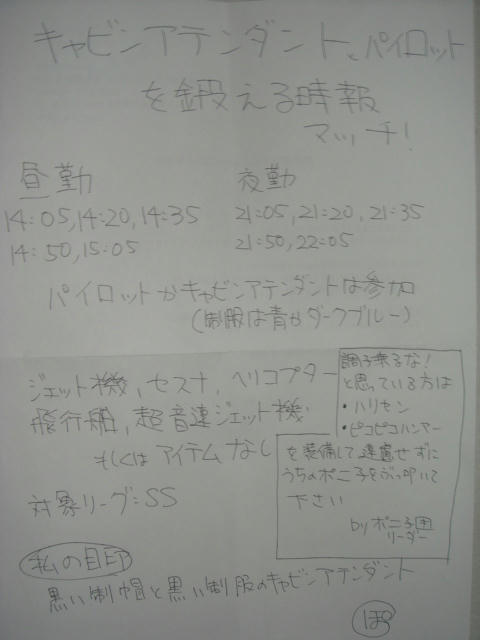 キャビンアテンダントとパイロット
を鍛える時報
マッチ!
昼勤
14:05,14:20,14:35
14:50,15:05
夜勤
21:05,21:20,21:35
21:50,22:05
パイロットかキャビンアテンダントは参加
(制服は青かダークブルー)
ジェット機、セスナ、ヘリコプター
飛行船、超音速ジェット機
もしくはアイテムなし
対象リーグ:SS
調子乗るな!
と思っている方は
・ハリセン
・ピコピコハンマー
を装備して遠慮せずに
うちのポニ子をぶっ叩いて
下さい
byポニ子団
リーダー
私の目印
黒い制帽と黒い制服のキャビンアテンダント